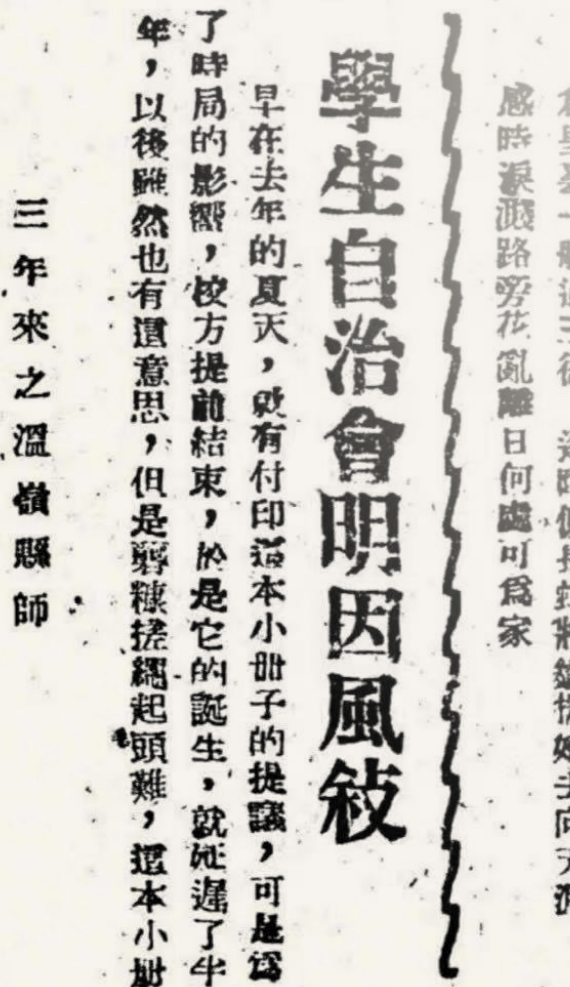 感時淚濺路旁花亂離日何處可爲家
學生自治會明因風敍
早在去年的夏天，就有付印這本小册子的提議，可是爲
了時局的影響，校方提前結束，於是它的誕生，就延遲了半
年，以後雖然也有這意思，但是剪糠搓繩起頭難，這本小册
三年來之溫嶺縣師